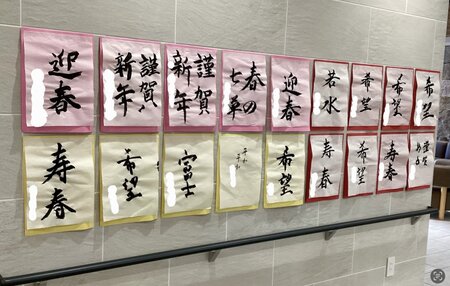 迎春
謹賀
新年
謹賀
新年
春の
七草
迎春
若水
希望
希望
希望
寿春
希望
富士
希望
寿春
希望
寿春
希望